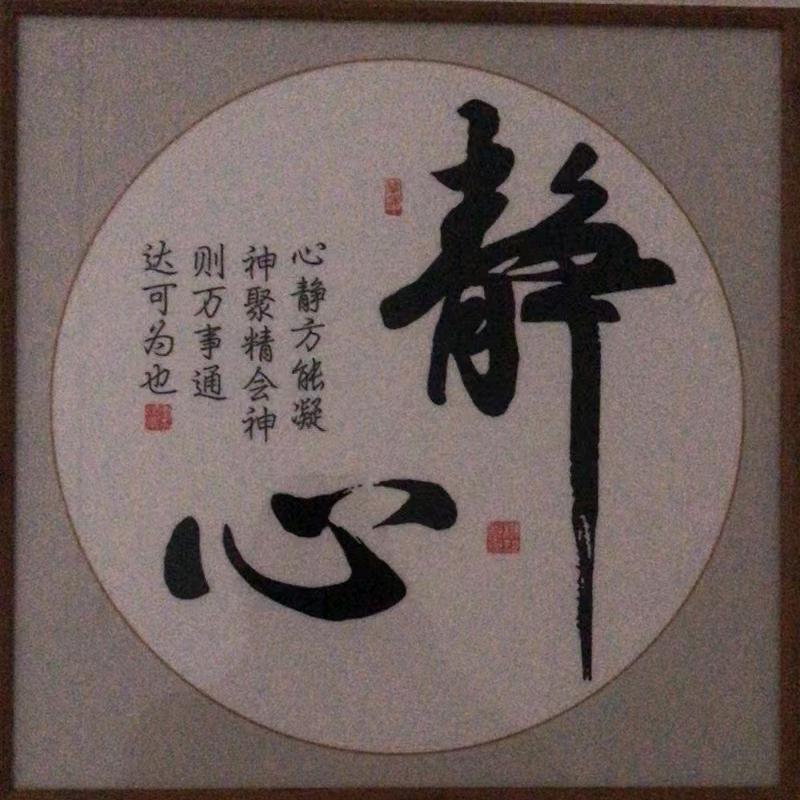 静心
心静方能凝
神聚精会神
则万事通
达可为也